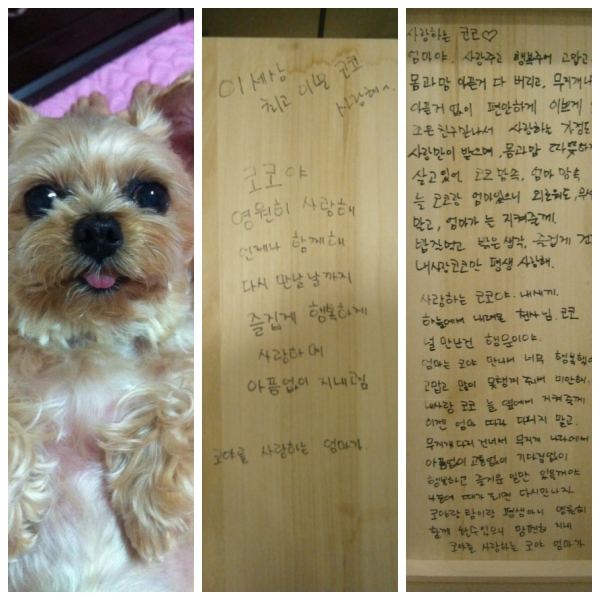 이세상
최고 이쁜 코코
사랑해^^
코코야
영원히 사랑해
언제나 함께해
다시 만날 날까지
즐겁게 행복하게
사랑하며
아픔없이 지내고있
코야를 사랑하는 엄마가.
사랑하는 코코♡
엄마야. 사랑주고 행복주어 고맙고
몸과 맘 아픈거 다 버리고, 무지개
아픈거 없이 편안하게 이쁘게
좋은친구만나서 사랑하는 가정
사랑만이 받으며, 몸과 맘 따뜻하
살고있어 코코 맘속, 엄마 맘속
늘 코코랑 엄마있으니 외로워도
말고, 엄마가 늘 지켜줄께
밥잘먹고 밝은생각, 즐겁게
내사랑코코만 평생 사랑해.
사랑하는 코코야. 내새끼.
하늘에서 내려온 천사님. 코코
널 만난건 행운이야.
엄마는 코야 만나서 너무 행복했
고맙고 많이 못챙겨 주어서 미안해.
내사랑 코코 늘 옆에서 지켜줄께
이젠 엄마 따라 다니지 말고.
무지개다리 건너서 무지개 나라에서
아픔없이 고통없이 기다림없이
행복하고 즐거운 일만 있을꺼야
나중에 때가 되면 다시만나자.
코야랑 평생아니 영원히
함께 할수있으니 맘편히 지내
코야를 사랑하는 코야 엄마가